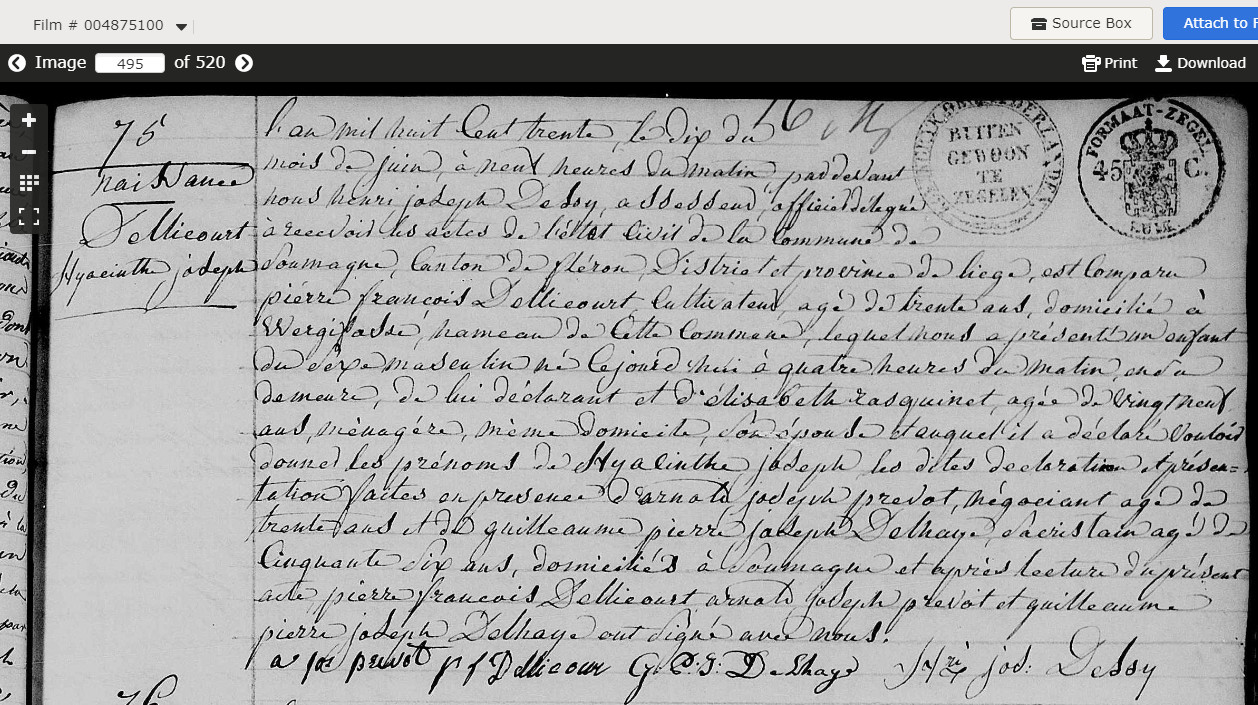 Film # 004875100
Source Box
Attach to F
Image 495 of 520
Print
Download
75
naissance
Dellicourt
Hyacinthe joseph
L'an mil huit Cent trente, le dix du
mois de juin, à neuf heures du matin, pardevant
nous henri joseph Dessy, assesseur, officier délégué
à recevoir les actes de l'état Civil de la Commune de
Soumagne, Canton de fléron, District et province de liege, est Comparu
piérre françois Dellicourt, Cultivateur, agé de trente ans, domicilié à
Wergifosse, hameau de Cette Commune, lequel nous a présenté un enfant
du séxe masculin né Cejourd'hui à quatre heures du matin, en sa
demeure, de lui déclarant et d'élisabeth rasquinet, agée de vingt neuf
ans, ménagère, même domicile, son épouse et auquel il a déclaré vouloir
donner les prénoms de Hyacinthe joseph les dites declaration et présen=
tation faites en presence d'arnold joseph prevot, négociant agé de
trente ans et de guilleaume pierre joseph Delhaye, sacristain agé de
Cinquante six ans, domiciliés à Soumagne et après lecture du présent
acte, pierre françois Dellicourt arnold joseph prevot et guilleaume
pierre joseph Delhaye ont signé avec nous.
a jos prevot p f Dellicour G. P. J. Delhaye jos: Dessy
76
BUITEN
GEWOON
TE
ZEGELEN
FORMAAT-ZEGEL
45 C.
LUIK